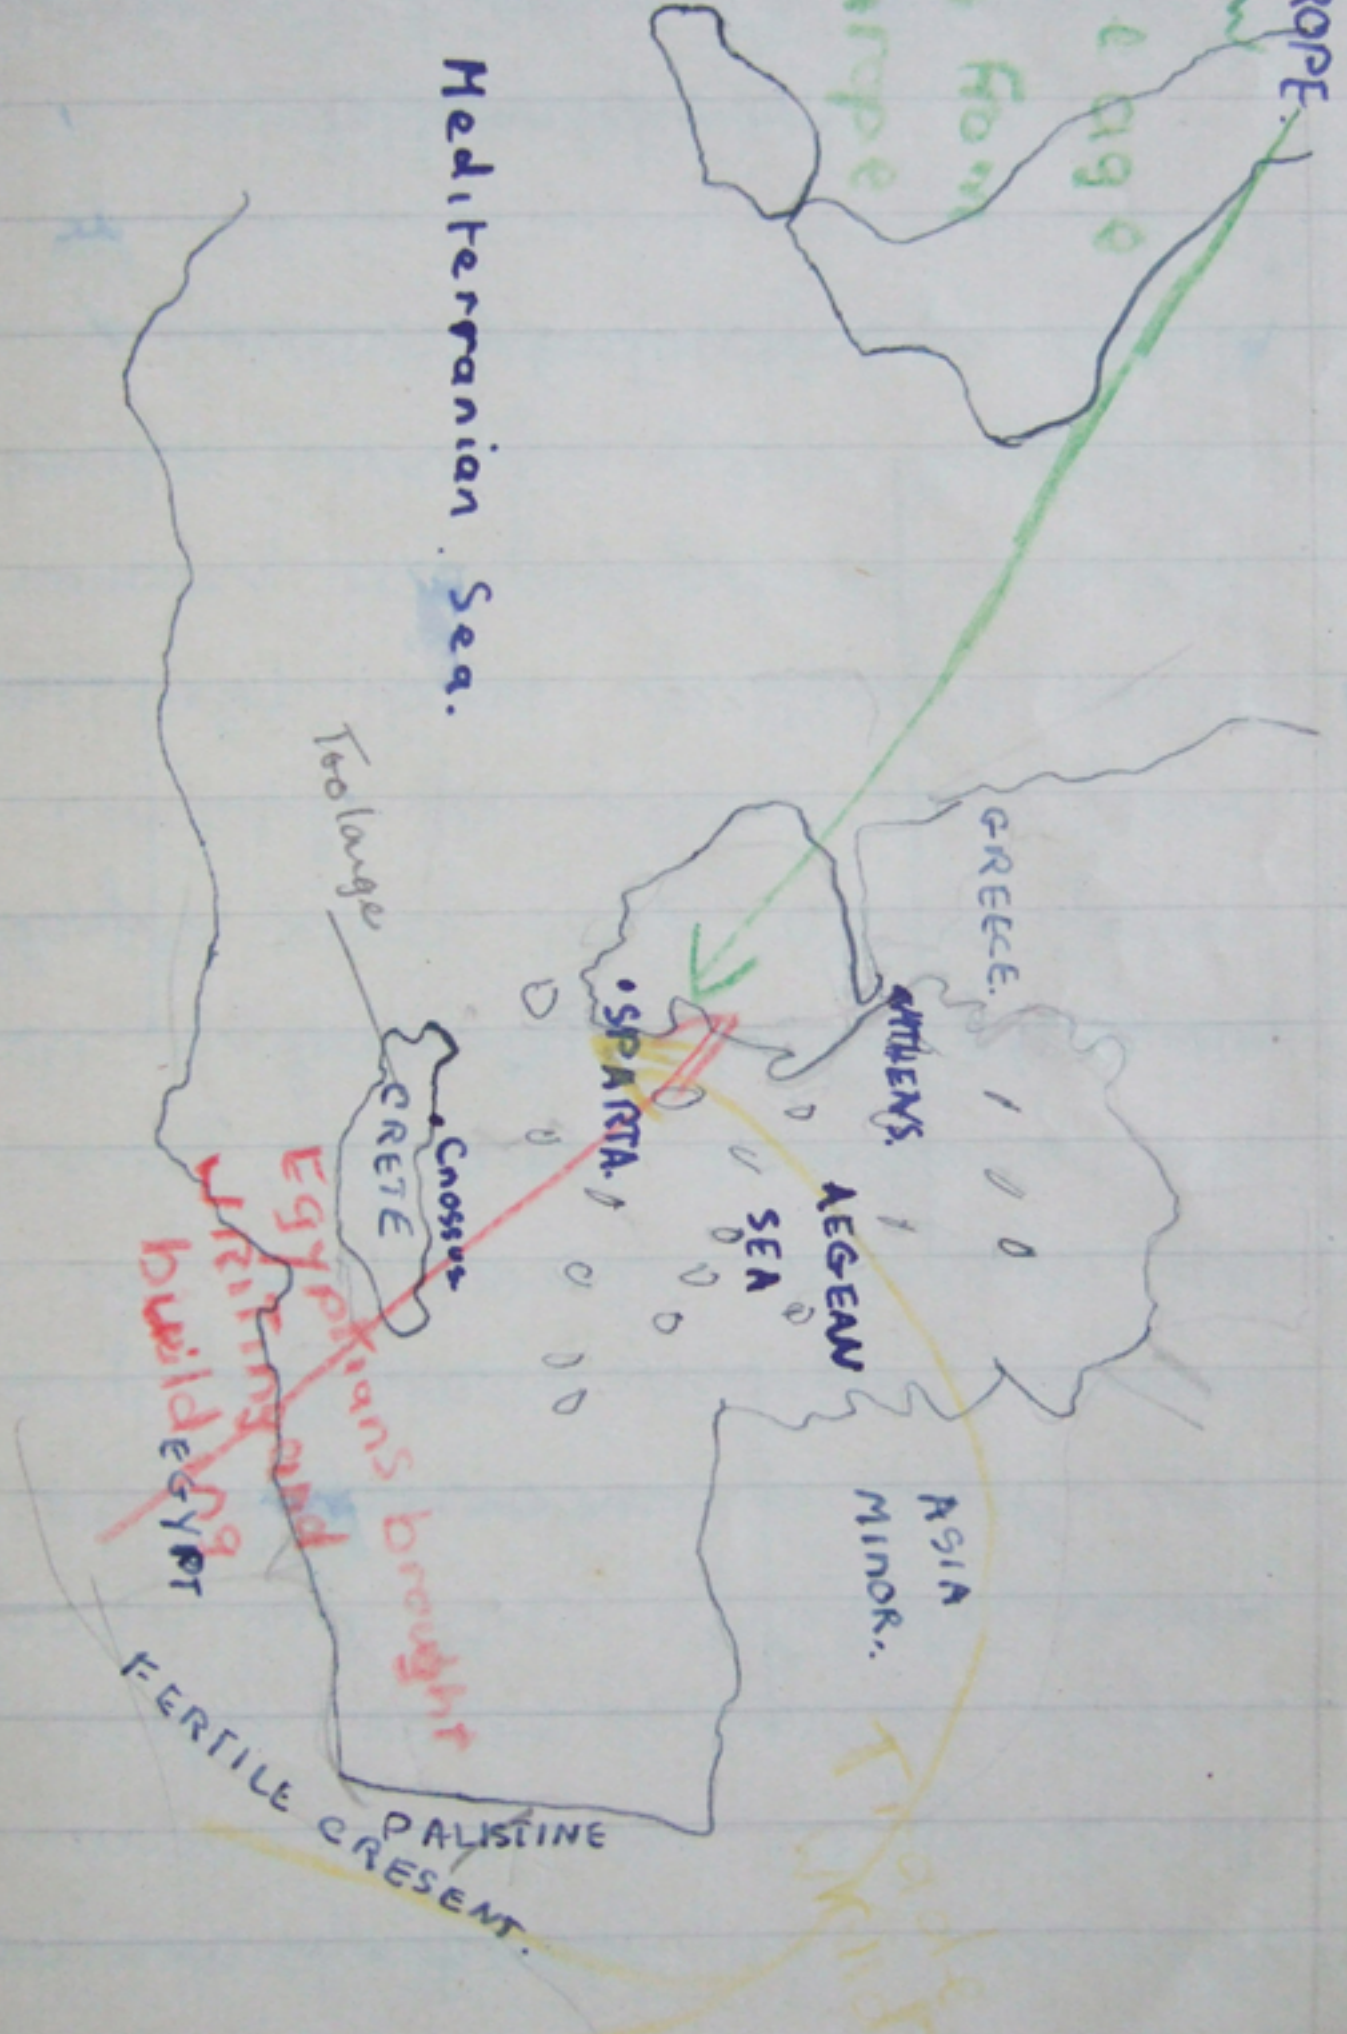 ROPE.
e age
from
rope
Mediterranian Sea.
GREECE.
ATHENS.
SPARTA.
AEGEAN
SEA
ASIA
MINOR.
Too large
Cnossus
CRETE
Egyptians brought
writing and
building
EGYPT
PALISTINE
FERTILE CRESENT.